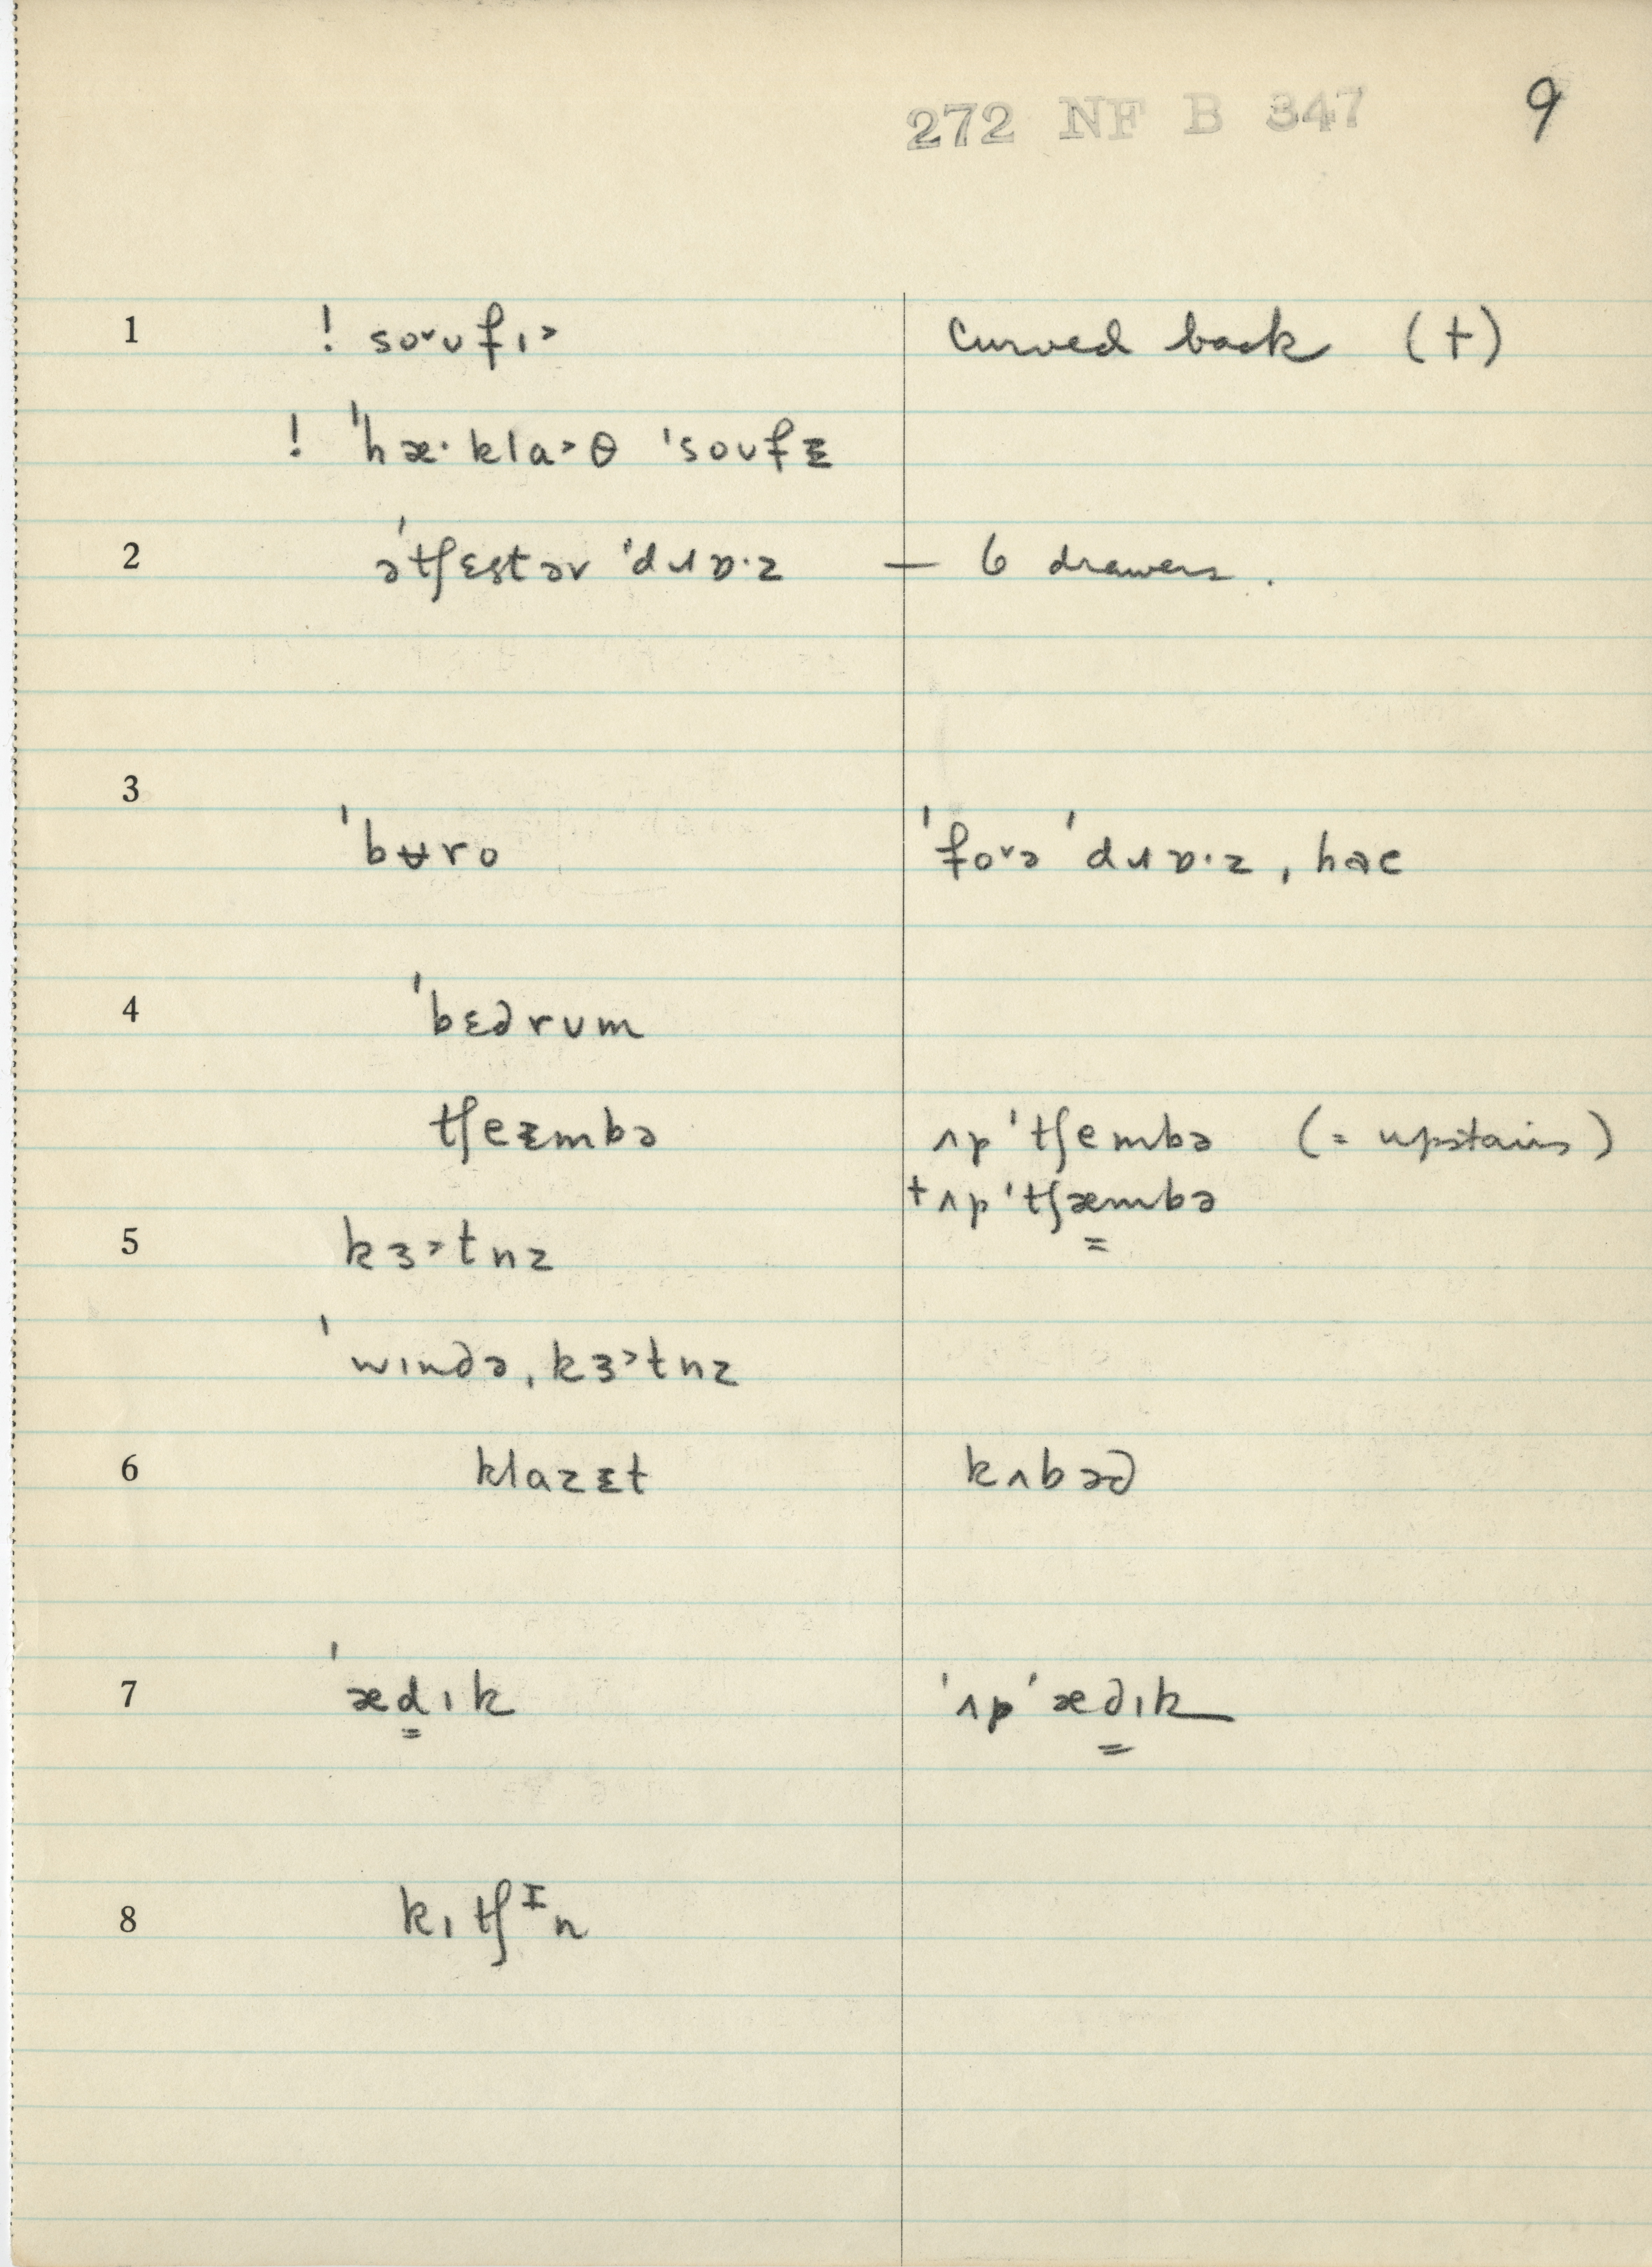 272 NF B 347 9
1 ! soᵛʊfɪ˃ curved back (†)
! 'hæ·kla˃θ 'soʊfᵻ
2 ə'tʃɛstəv 'dɹɒ·z — 6 drawers.
3 'bʉro 'foᵛə 'dɹɒ·z, hac
4 'bɛdrʊm
tʃeɛmbə ʌp'tʃembə (= upstairs)
†ʌp'tʃæmbə
5 kɜ˃tnz
'wɪndə, kɜ˃tnz
6 klazɛt kʌbəd
7 'ædɪk 'ʌp'ædɪk
8 kɪtʃᴵn